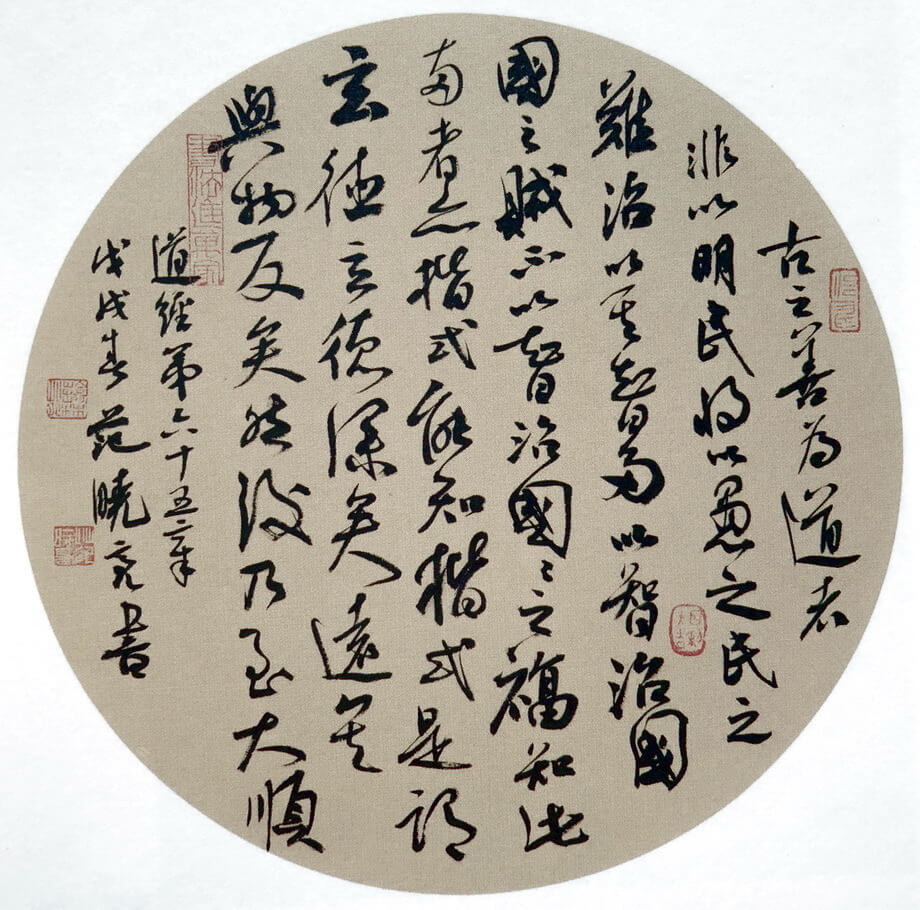 古之善為道者
非以明民將以愚之民之
難治以其智多以智治國
國之賊不以智治國〻之福知此
兩者亦楷式能知楷式是謂
玄德玄德深矣遠矣
與物反矣然後乃至大順
書法進萬家
道經第六十五章
戊戌春范曉亮書